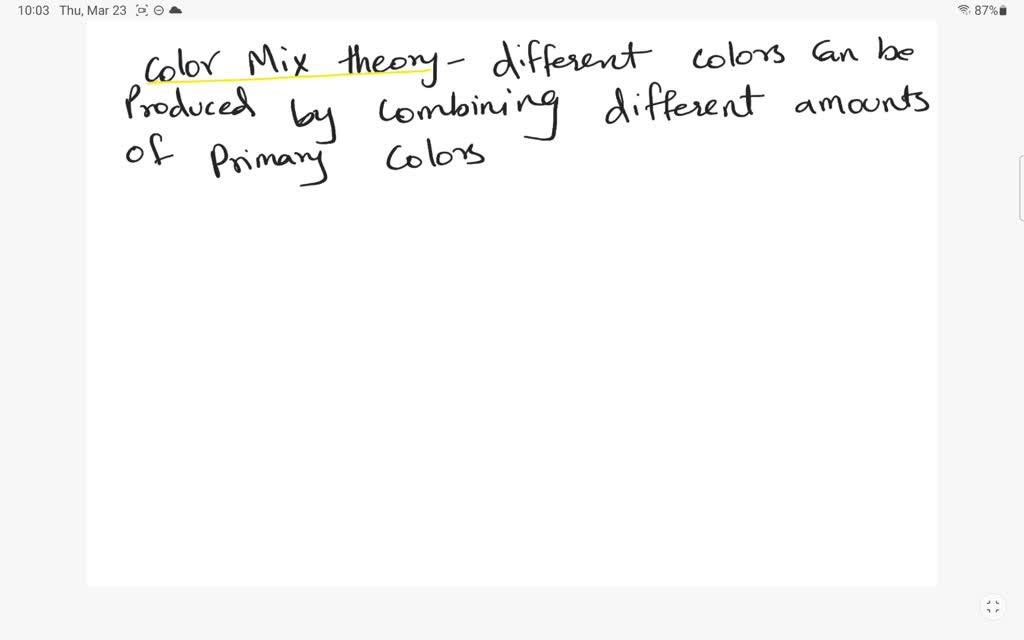 10:03 Thu, Mar 23 87%
Color Mix theory - different colors can be
Produced by combining different amounts
of Primary Colors